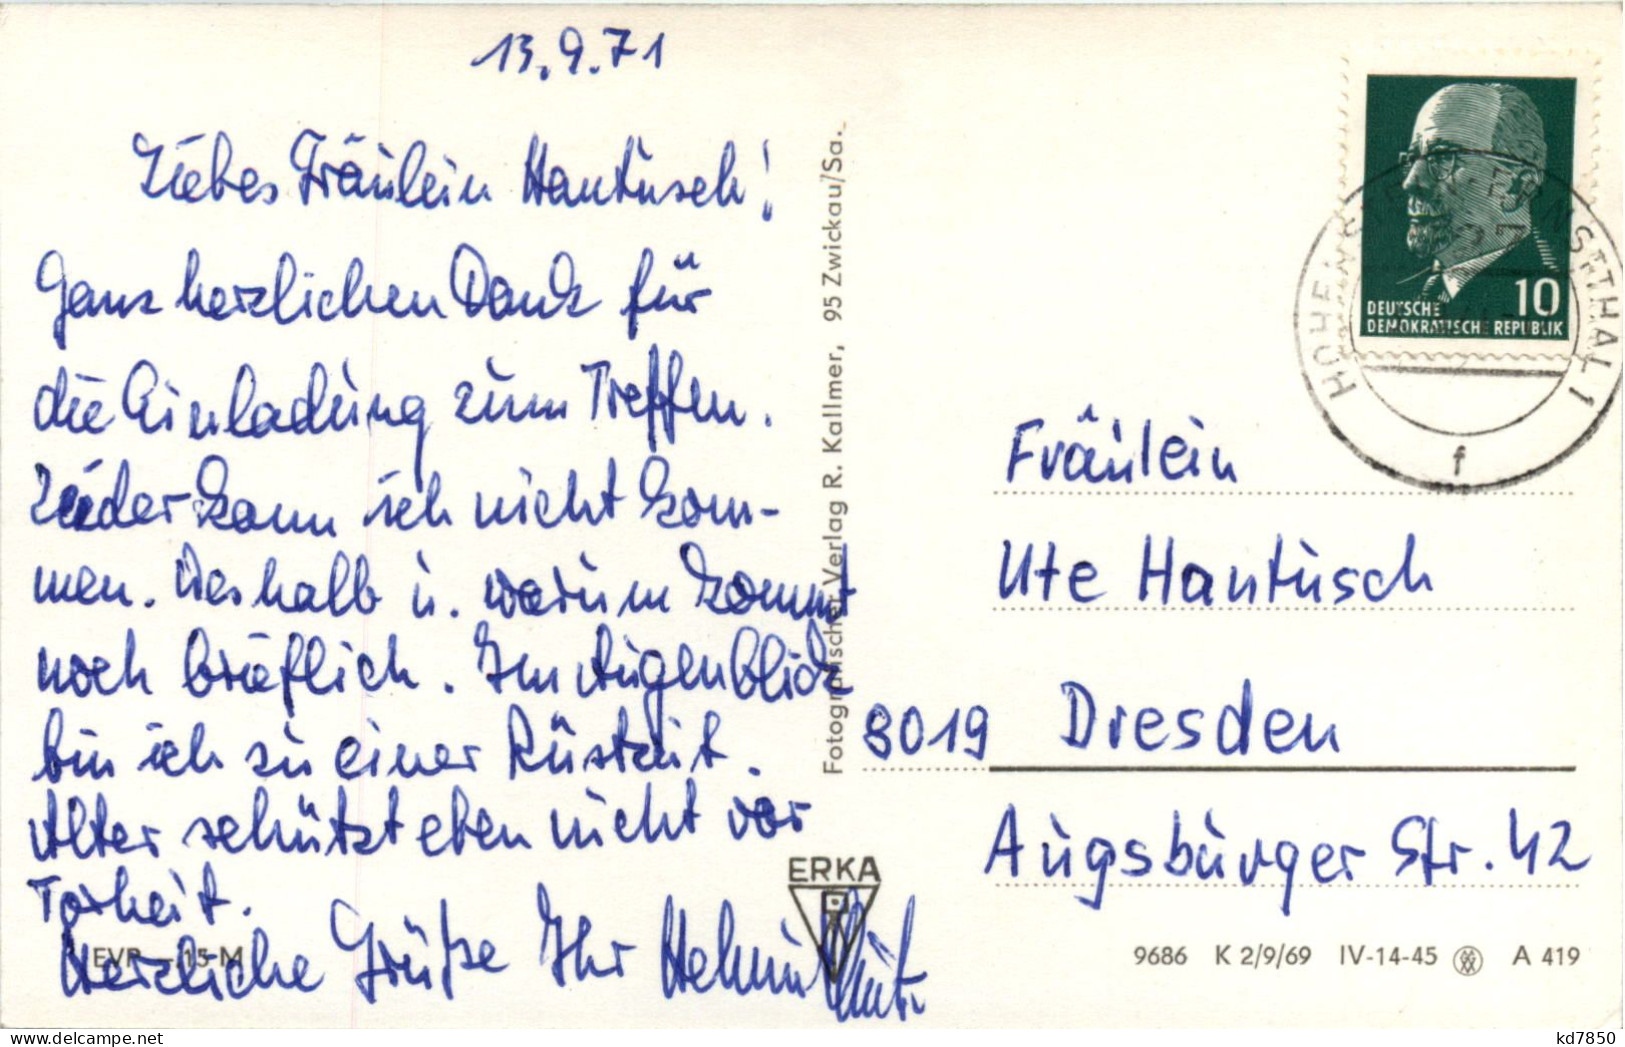 13.9.71
Liebes Fräulein Hantusch!
Ganz herzlichen Dank für
die Einladung zum Treffen.
Leider kann ich nicht kom-
men. Weshalb u. warum kommt
noch brieflich. Im Augenblick
bin ich zu einer Rüstzeit.
Alter schützt eben nicht vor
Torheit.
Herzliche Grüße Ihr Helmut
EVP –.15 M
Fotografischer Verlag R. Kallmer, 95 Zwickau/Sa.
ERKA
DEUTSCHE 10
DEMOKRATISCHE REPUBLIK
HOHENSTEIN-ERNSTTHAL 1
f
Fräulein
Ute Hantusch
8019 Dresden
Augsburger Str. 42
9686 K 2/9/69 IV-14-45 A 419
kd7850